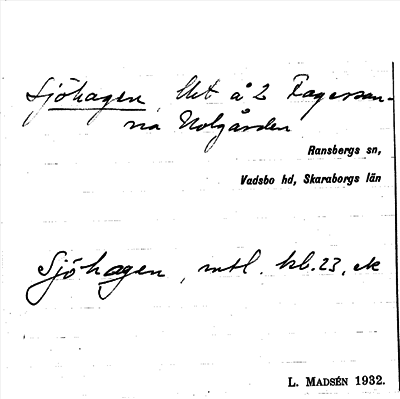 Sjöhagen, lht å 2 Fagersan-
na Nolgården
Ransbergs sn,
Vadsbo hd, Skaraborgs län
Sjöhagen, mtl. kbl. 23, ek
L. MADSÉN 1932.